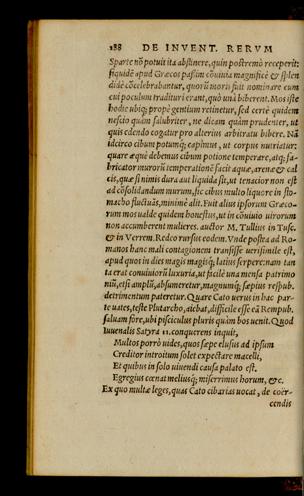 188 DE INVENT. RERVM
Sparte nõ potuit ita abstinere, quin postremò receperit:
siquidẽ apud Græcos passim cõuiuia magnificè & splen
didè cõcelebrabantur, quorũ moris fuit nominare eum
cui poculum tradituri erant, quò unà biberent. Mos iste
hodie ubiq; propè gentium retinetur, sed certè quidem
nescio quàm salubriter, ne dicam quàm prudenter, ut
quis edendo cogatur pro alterius arbitratu bibere. Nã
idcirco cibum potumq; capimus, ut corpus nutriatur:
quare æquè debemus cibum potione temperare, atq; fa-
bricator murorũ temperationẽ facit aquæ, arenæ & cal
cis, quæ si nimis dura aut liquida sit, ut tenacior non est
ad cõsolidandum murum, sic cibus multo liquore in sto-
macho fluctuãs, minimè alit. Fuit alius ipsorum Græco-
rum mos ualde quidem honestus, ut in cõuiuio uirorum
non accumberent mulieres. auctor M. Tullius in Tusc.
& in Verrem. Redeo rursus eodem. Vnde postea ad Ro-
manos hanc mali contagionem transisse uerisimile est,
apud quos in dies magis magisq; latius serpere: nam tan
ta erat conuiuiorũ luxuria, ut facilè una mensa patrimo
niũ, etsi amplũ, absumeretur, magnumq; sæpius respub.
detrimentum pateretur. Quare Cato uerus in hac par-
te uates, teste Plutarcho, aiebat, difficile esse eã Rempub.
saluam fore, ubi pisciculus pluris quàm bos uenit. Quod
Iuuenalis Satyra 11. conquerens inquit,
Multos porrò uides, quos sæpe elusus ad ipsum
Creditor introitum solet expectare macelli,
Et quibus in solo uiuendi causa palato est.
Egregius cœnat meliusq; miserrimus horum, &c.
Ex quo multæ leges, quas Cato cibarias uocat, de coër-
cendis